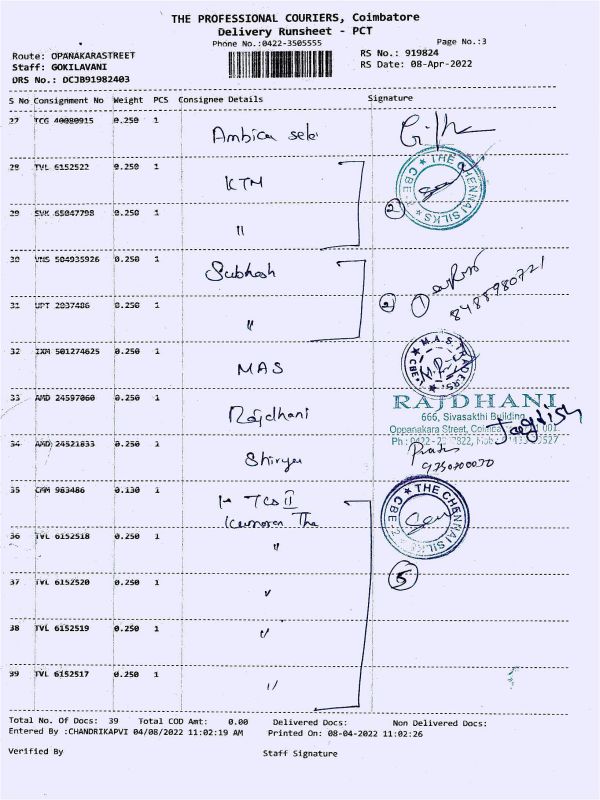 THE PROFESSIONAL COURIERS, Coimbatore
Delivery Runsheet - PCT
Phone No.:0422-3505555 Page No.:3
Route: OPANAKARASTREET RS No.: 919824
Staff: GOKILAVANI RS Date: 08-Apr-2022
DRS No.: DCJB91982403
S No Consignment No Weight PCS Consignee Details Signature
27 TCG 40080915 0.250 1 Ambica
28 TVL 6152522 0.250 1 KTM
THE CHENNAI SILKS CBE-
29 SVK 65047798 0.250 1 "
2
30 VNS 504935926 0.250 1 Subhash
8488980721
31 UPT 2037486 0.250 1 "
32 IXM 501274625 0.250 1 MAS
M.A.S. TRADERS CBE-1
33 AMD 24597060 0.250 1 Rajdhani
RAJDHANI
666, Sivasakthi Building
Oppanakara Street, 001.
Jagdish
34 AMD 24521833 0.250 1
9750700070
35 CMM 963486 0.130 1
THE CHENNAI SILKS CBE-2
36 TVL 6152518 0.250 1 "
5
37 TVL 6152520 0.250 1 "
38 TVL 6152519 0.250 1 "
39 TVL 6152517 0.250 1 "
Total No. Of Docs: 39 Total COD Amt: 0.00 Delivered Docs: Non Delivered Docs:
Entered By :CHANDRIKAPVI 04/08/2022 11:02:19 AM Printed On: 08-04-2022 11:02:26
Verified By Staff Signature